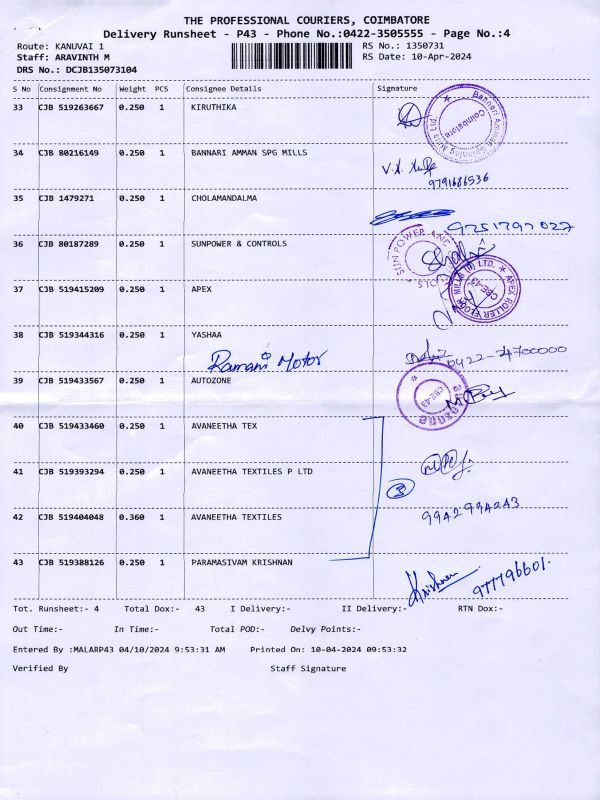 THE PROFESSIONAL COURIERS, COIMBATORE
Delivery Runsheet - P43 - Phone No.:0422-3505555 - Page No.:4
Route: KANUVAI 1
RS No.: 1350731
Staff: ARAVINTH M
RS Date: 10-Apr-2024
DRS No.: DCJB135073104
S No Consignment No Weight PCS Consignee Details Signature
33 CJB 519263667 0.250 1 KIRUTHIKA
Bannari Amman Spinning Mills Ltd Coimbatore
34 CJB 80216149 0.250 1 BANNARI AMMAN SPG MILLS
9791686536
35 CJB 1479271 0.250 1 CHOLAMANDALMA
9751797027
36 CJB 80187289 0.250 1 SUNPOWER & CONTROLS
SUN POWER AND
37 CJB 519415209 0.250 1 APEX
APEX ROLLER FLOUR MILLS (P) LTD. CBE-43
38 CJB 519344316 0.250 1 YASHAA
Ramani Motor
0422-4700000
39 CJB 519433567 0.250 1 AUTOZONE
CBE-43
40 CJB 519433460 0.250 1 AVANEETHA TEX
41 CJB 519393294 0.250 1 AVANEETHA TEXTILES P LTD
3
42 CJB 519404048 0.360 1 AVANEETHA TEXTILES
9942994243
43 CJB 519388126 0.250 1 PARAMASIVAM KRISHNAN
Krishnan
977796601.
Tot. Runsheet:- 4 Total Dox:- 43 I Delivery:- II Delivery:- RTN Dox:-
Out Time:- In Time:- Total POD:- Delvy Points:-
Entered By :MALARP43 04/10/2024 9:53:31 AM Printed On: 10-04-2024 09:53:32
Verified By Staff Signature